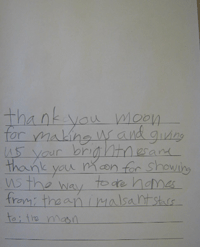 thank you moon
for making us and giving
us your brightness and
thank you moon for showing
us the way to are homes
from: the animals ant stars
to: the moon